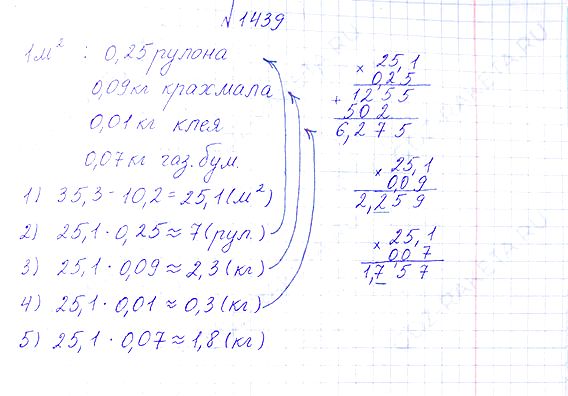 √ 1439
1м² : 0,25 рулона
0,09 кг крахмала
0,01 кг клея
0,07 кг газ. бум.
1) 35,3 - 10,2 = 25,1 (м²)
2) 25,1 · 0,25 ≈ 7 (рул.)
3) 25,1 · 0,09 ≈ 2,3 (кг)
4) 25,1 · 0,01 ≈ 0,3 (кг)
5) 25,1 · 0,07 ≈ 1,8 (кг)
× 25,1
0,25
+ 1255
502
6,275
× 25,1
0,09
2,259
× 25,1
0,07
1,757